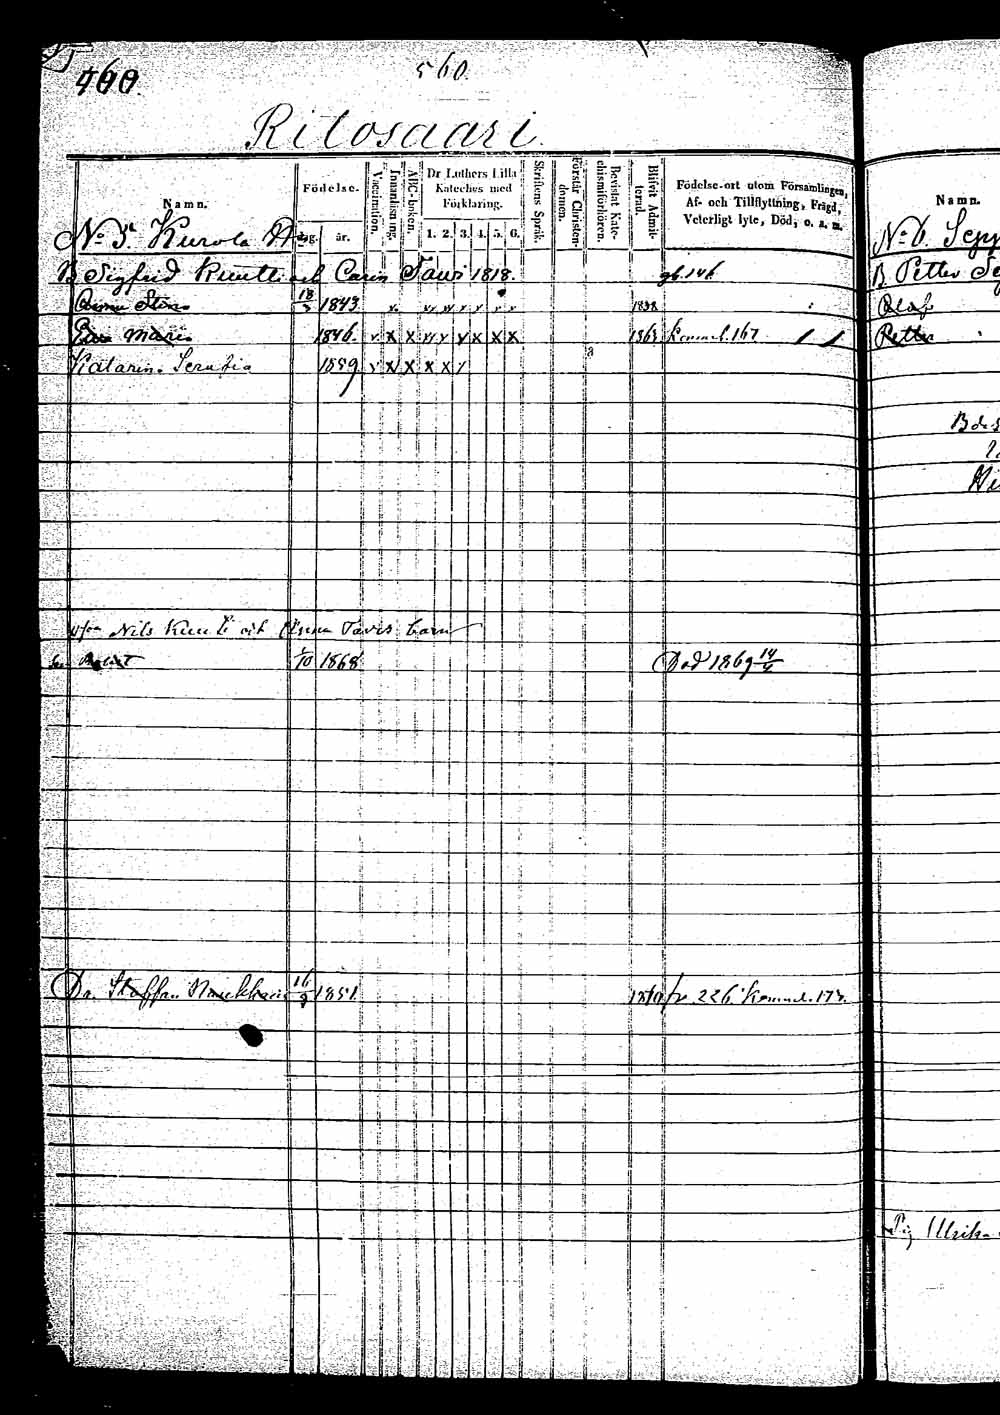 460.
560.
Ritosaari.
Namn.
Födelse-
dag. år.
Vaccination.
Innanläsning
ABC-boken.
Dr Luthers Lilla Kateches med Förklaring.
1. 2. 3. 4. 5. 6.
Skriftens Språk.
Förstår Christendomen.
Bevistat Katechismiförhören.
Blifvit Admitterad.
Födelse-ort utom Församlingen, Af- och Tillflyttning, Frägd, Veterligt lyte, Död, o. a. m.
No 5. Kurola
B Sigfrid Knutti och Carin Tavi 1818. gb. 146
Anna Stina 18 1843 1858
Eva Maria 1846. 1863 Kommel. 167
Katarin. Serafia 1859
Nils Knuti och Anna Tavis barn
10 1868 Död 1869 14
Dr. Staffan 16/9 1851. fr 226. Kommel. 173.
Namn.
No 6. Sepp
B Petter Se
Olof
Petter
B d. s
Pig Ulrika